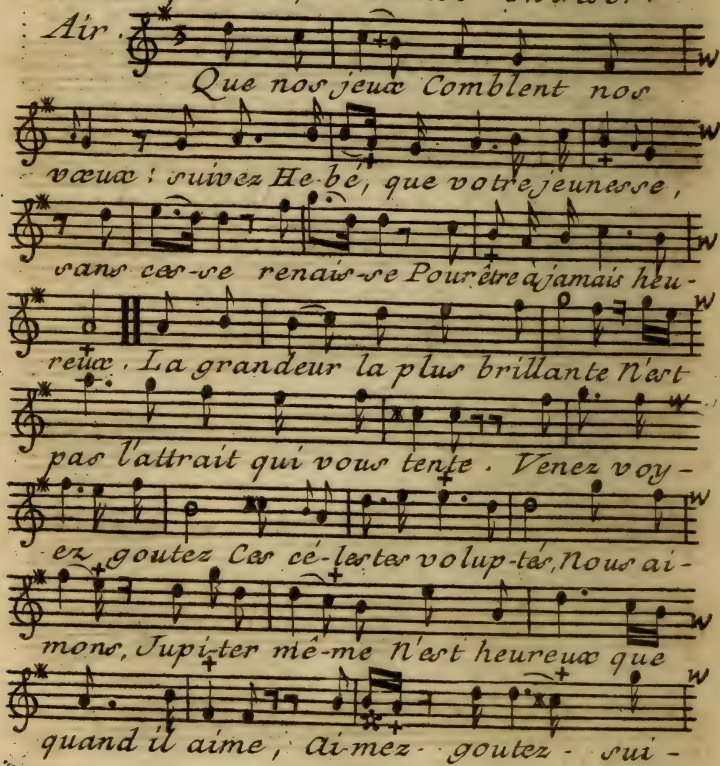 Air.
Que nos jeux Comblent nos
vœux : suivez He-bé, que votre jeunesse,
sans ces-se renais-se Pour être à jamais heu-
reux. La grandeur la plus brillante N'est
pas l'attrait qui vous tente. Venez voy-
ez goutez Ces cé-lestes volup-tés, Nous ai-
mons, Jupi-ter mê-me N'est heureux que
quand il aime, Ai-mez- goutez- sui-